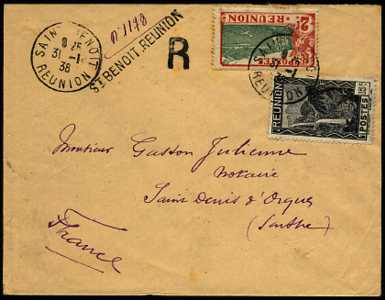 SAINT BENOIT
8 15
31 -1
38
REUNION
n° 1178
St BENOIT. REUNION
R
2F
POSTES
REUNION
REUNION
POSTES
Monsieur Gaston Julienne
Notaire
Saint Denis d'Orques
(Sarthe)
France